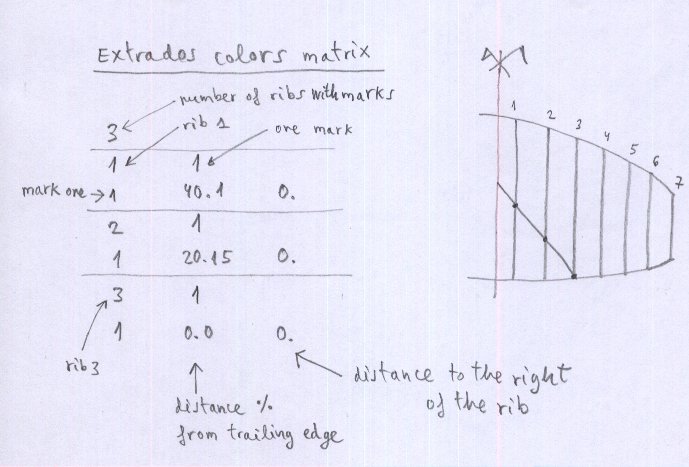 Extrados colors matrix
number of ribs with marks
3
rib 1
one mark
1 1
mark one → 1 40.1 0.
2 1
1 20.15 0.
3 1
1 0.0 0.
rib 3
distance %
from trailing edge
distance to the right
of the rib
1 2 3 4 5 6 7